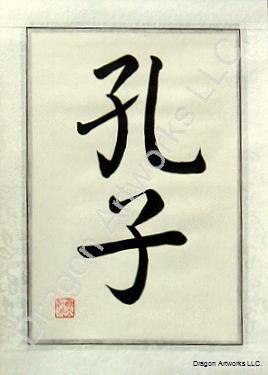 孔
子
Dragon Artworks LLC.
Dragon Artworks LLC.